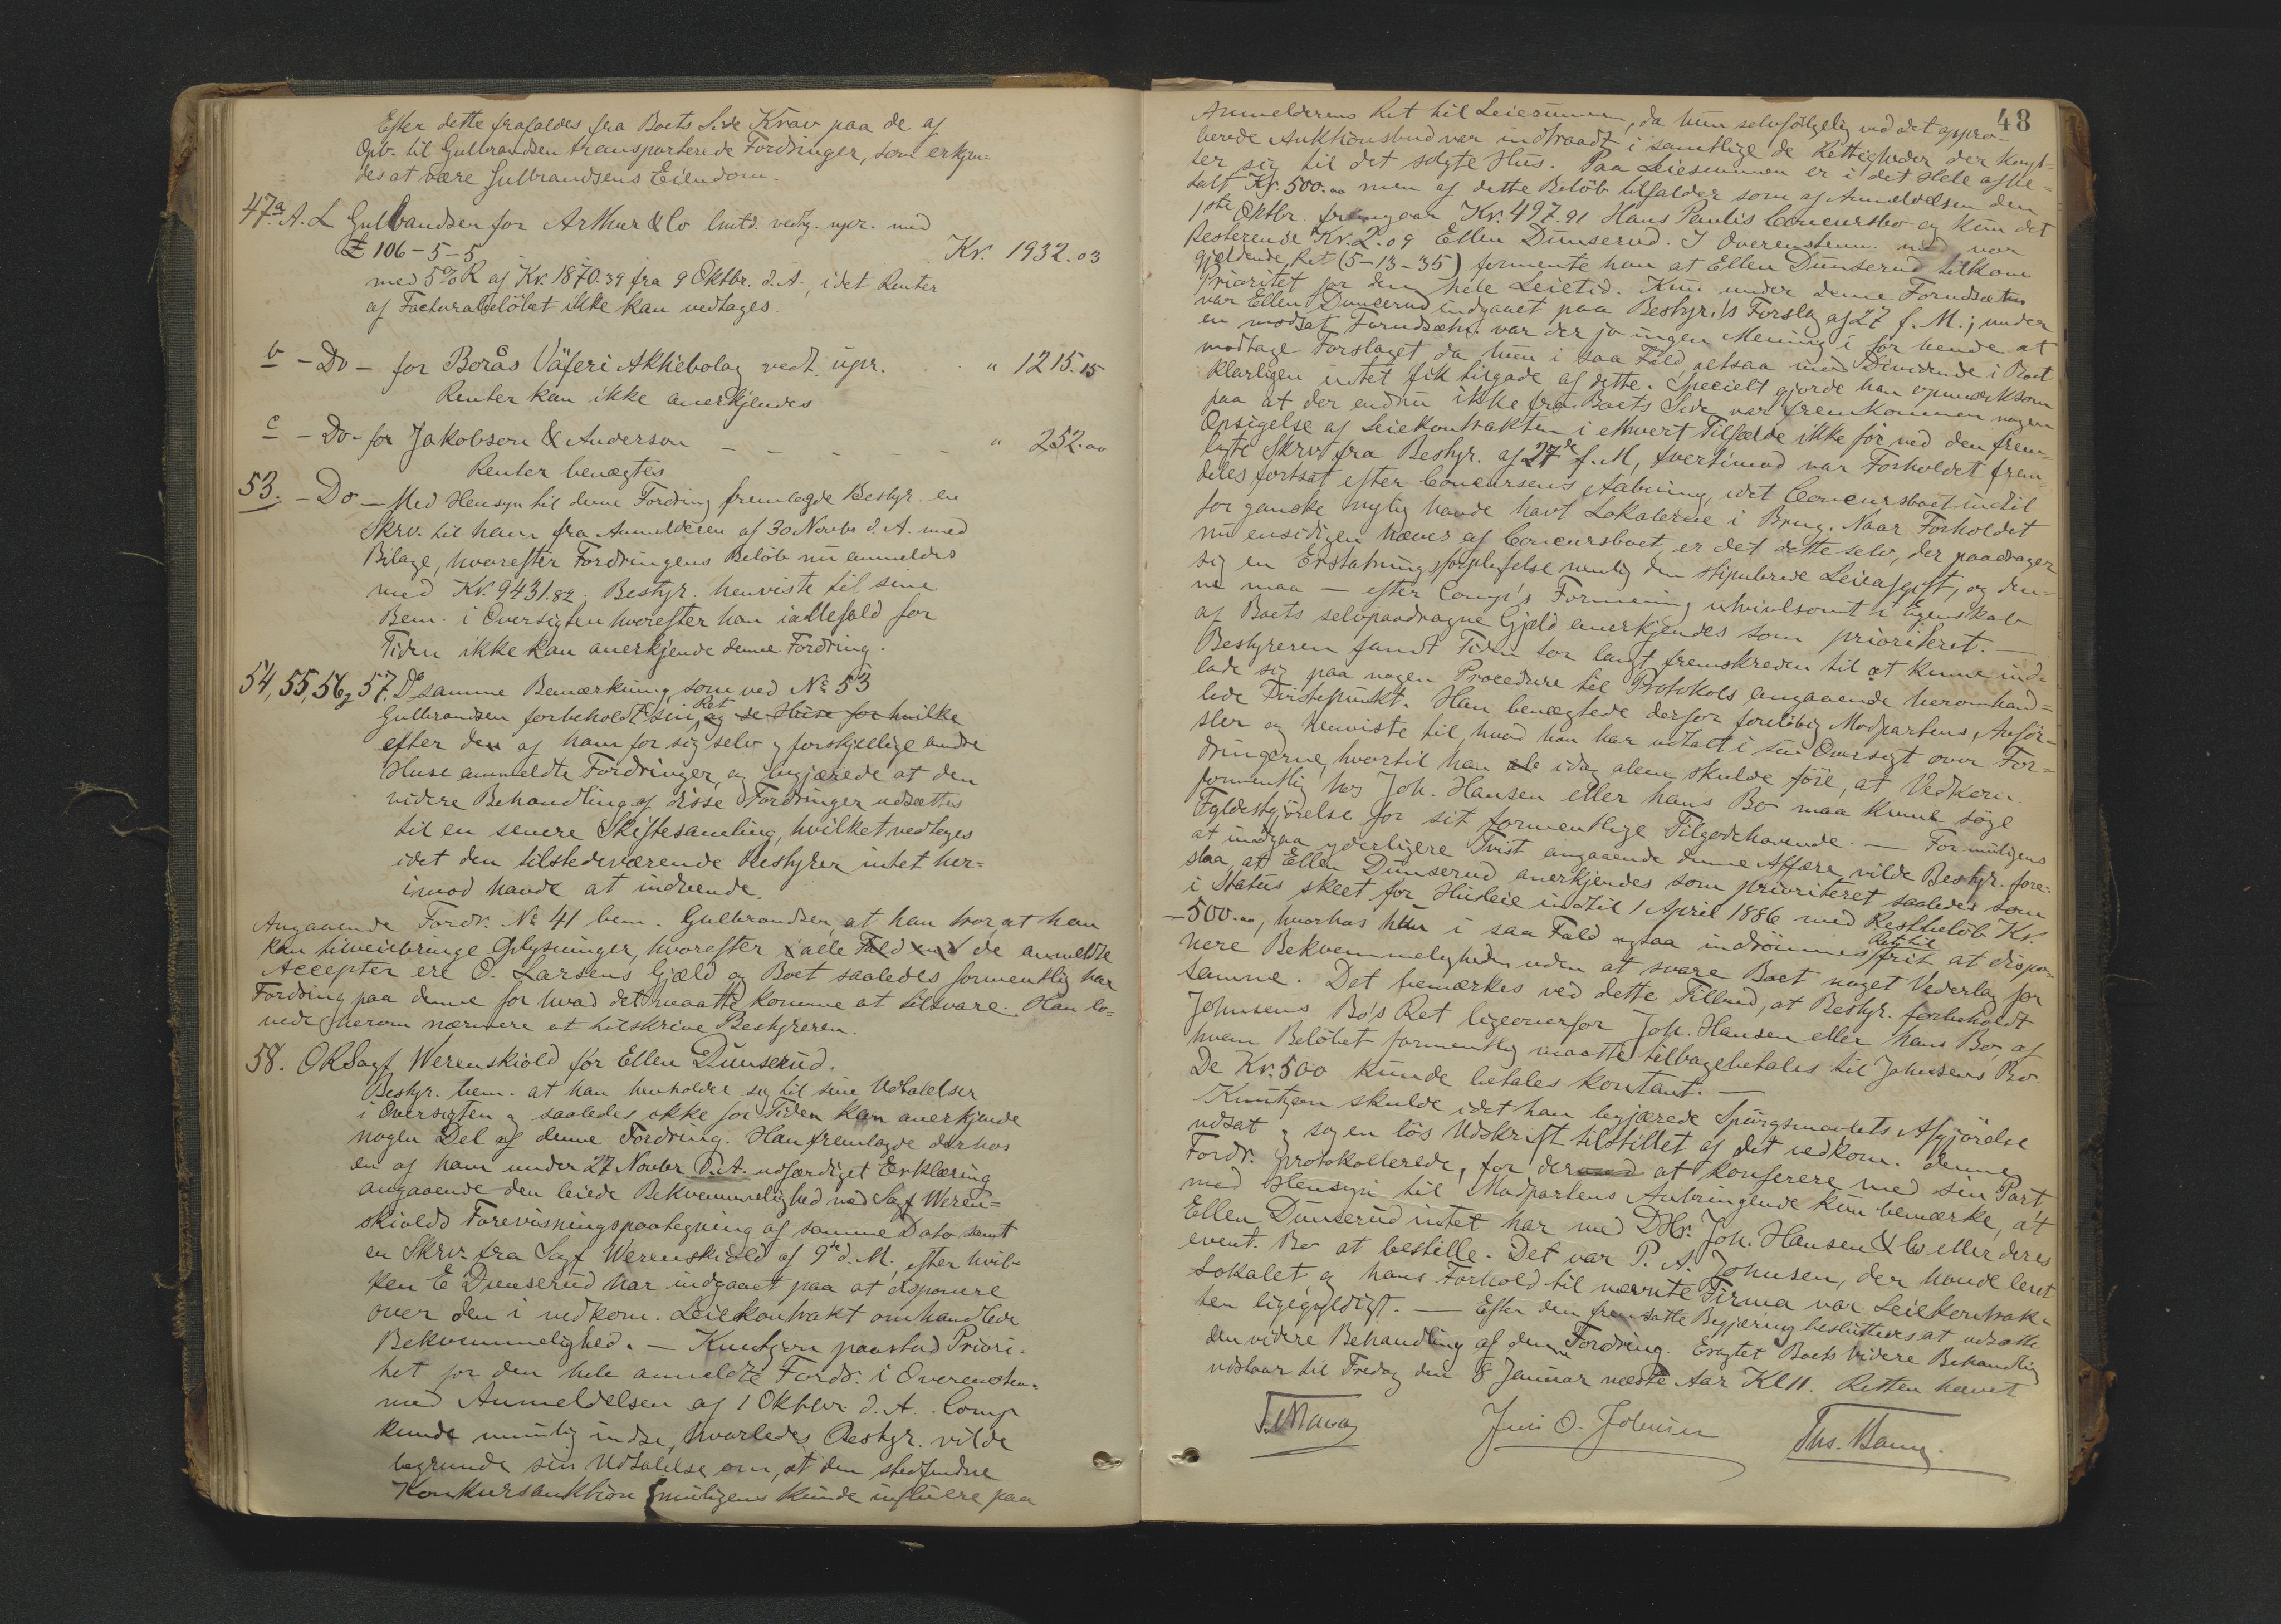 Efter dette frafaldes fra Boets Side Krav paa de af
Opb. til Gulbrandsen transporterede Fordringer, som erkjen=
des at være Gulbrandsens Eiendom.
47a. A. L Gulbrandsen for Arthur & Co vedt. upr. med
£ 106-5-5 Kr. 1932.03
med 5% R af Kr. 1870.39 fra 9 Oktbr. d. A., idet Renter
af Facturabeløbet ikke kan vedtages.
b - Do - for Borås Väferi Aktiebolag vedt. upr. . . " 1215.15
Renter kan ikke anerkjendes
c - Do - for Jakobson & Anderson - - - - - - " 252.00
Renter benægtes
53. - Do - Med Hensyn til denne Fordring fremlagde Bestyr. en
Skrv. til ham fra Anmelderen af 30 Novbr d. A. med
Bilage, hvorefter Fordringens Beløb nu anmeldes
med Kr. 9431.82. Bestyr. henviste til sine
Bem. i Oversigten hvorefter han iallefald for
Tiden ikke kan anerkjende denne Fordring.
54, 55, 56 og 57. Do samme Bemærkning som ved No 53
Gulbrandsen forbeholdt sin Ret og de Huse for hvilke
efter den af ham for sig selv og forskjellige andre
Huse anmeldte Fordringer, og begjærede at den
videre Behandling af disse Fordringer udsættes
til en senere Skiftesamling, hvilket vedtoges
idet den tilstedeværende Bestyrer intet her=
imod havde at indvende.
Angaaende Fordr. No 41 bem. Gulbrandsen, at han tror, at han
kan tilveiebringe Oplysninger, hvorefter i alle Fald de anmeldte
Accepter ere O. Larsens Gjæld og Boet saaledes formentlig har
Fordring paa denne for hvad det maatte komme at tilsvare. Han lo=
vede herom nærmere at tilskrive Bestyreren.
58. ORSagf. Werenskiold for Ellen Dunserud.
Bestyr. bem. at han henholder sig til sine Udtalelser
i Oversigten og saaledes ikke for Tiden kan anerkjende
nogen Del af denne Fordring. Han fremlagde derhos
en af ham under 27 Novbr d. A. udfærdiget Erklæring
angaaende den leiede Bekvemmelighed med Sagf. Weren=
skiolds Forevisningspaategning af samme Dato samt
en Skrv. fra Sagf. Werenskiold af 9de d. M., efter hvil=
ken E Dunserud har indgaaet paa at disponere
over den i vedkom. Leiekontrakt omhandlede
Bekvemmelighed. - Kuntzen paastod Priori=
tet for den hele anmeldte Fordr. i Overensstem.
med Anmeldelsen af 1 Oktbr. d. A. Comp
kunde umulig indse, hvorledes Bestyr. vilde
begrunde sin Udtalelse om, at den stedfundne
Konkursauktion muligens kunde influere paa
48
Anmelderens Ret til Leiesummen, da hun selvfølgelig ved det appro=
berede Auktionsbud var indtraadt i samtlige de Rettigheder der knyt=
ter sig til det solgte Hus. Paa Leiesummen er i det Hele afbe=
talt Kr. 500.00 men af dette Beløb tilfalder som af Anmeldelsen den
1ste Oktbr. fremgaar Kr. 497.91 Hans Paulis Concursbo og kun det
resterende Kr. 2.09 Ellen Dunserud. I Overenstem. med vor
gjældende Ret (5-13-35) formente han at Ellen Dunserud tilkom
Prioritet for den hele Leietid. Kun under denne Forudsætn.
var Ellen Dunserud indgaaet paa Bestyr.'s Forslag af 27 f. M.; under
en modsat Forudsætn. var der jo ingen Mening i for hende at
modtage Forslaget, da hun i saa Fald, altsaa med Dividende i Boet
klarligen intet fik tilgode af dette. Specielt gjorde han opmærksom
paa at der endnu ikke fra Boets Side var fremkommen nogen
Opsigelse af Leiekontrakten i ethvert Tilfælde ikke før ved den frem=
lagte Skrv. fra Bestyr. af 27de f. M, tvertimod var Forholdet frem=
deles fortsat efter Concursens Aabning, idet Concursboet indtil
for ganske nylig havde havt Lokalerne i Brug. Naar Forholdet
nu ensidigen hæves af Concursboet, er det dette selv, der paadrager
sig en Erstatningsforpligtelse nemlig den stipulerede Leieafgift, og den=
ne maa - efter Comp's Formening utvivlsomt i Egenskab
af Boets selvpaadragne Gjæld anerkjendes som prioriteret. -
Bestyreren fandt Tiden for langt fremskreden til at kunne ind=
lade sig paa nogen Procedure til Protokols angaaende heromhand=
lede Tvistepunkt. Han benægtede derfor foreløbig Modpartens Anför=
sler og henviste til, hvad han har udtalt i sin Oversigt over For=
dringerne, hvortil han idag alene skulde föie, at Vedkom.
formentlig hos Joh. Hansen eller hans Bo maa kunne søge
Fyldestgjørelse for sit formentlige Tilgodehavende. - For muligens
at undgaa yderligere Tvist angaaende denne Affære vilde Bestyr. fore=
slaa, at Ellen Dunserud anerkjendes som prioriteret saaledes som
i Status skeet for Husleie indtil 1 April 1886 med Restbeløb Kr.
- 500.00, hvorhos hun i saa Fald ogsaa indrömmes Ret til frit at dispo=
nere Bekvemmeligheden uden at svare Boet noget Vederlag for
samme. Det bemærkes ved dette Tilbud, at Bestyr. forbeholdt
Johnsens Bo's Ret ligeoverfor Joh. Hansen eller hans Bo, af
hvem Beløbet formentlig maatte tilbagebetales til Johnsens Bo.
De Kr. 500 kunde betales kontant. -
Kuntzen skulde idet han begjærede Spørgsmaalets Afgjörelse
udsat og sig en løs Udskrift tilstillet af det vedkom. denne
Fordr. protokollerede, for derved at konferere med sin Part,
med Hensyn til Modpartens Anbringende kun bemærke, at
Ellen Dunserud intet har med DHr. Joh. Hansen & Co eller deres
event. Bo at bestille. Det var P. A. Johnsen, der havde leiet
Lokalet, og hans Forhold til nævnte Firma var Leiekontrak=
ten ligegyldigt. - Efter den fremsatte Begjæring besluttedes at udsætte
den videre Behandling af denne Fordring. Eragtet Boets videre Behandling
udstaar til Fredag den 8 Januar næste Aar Kl 11. Retten hævet
Jens O. Johnsen
Ths. Bang.